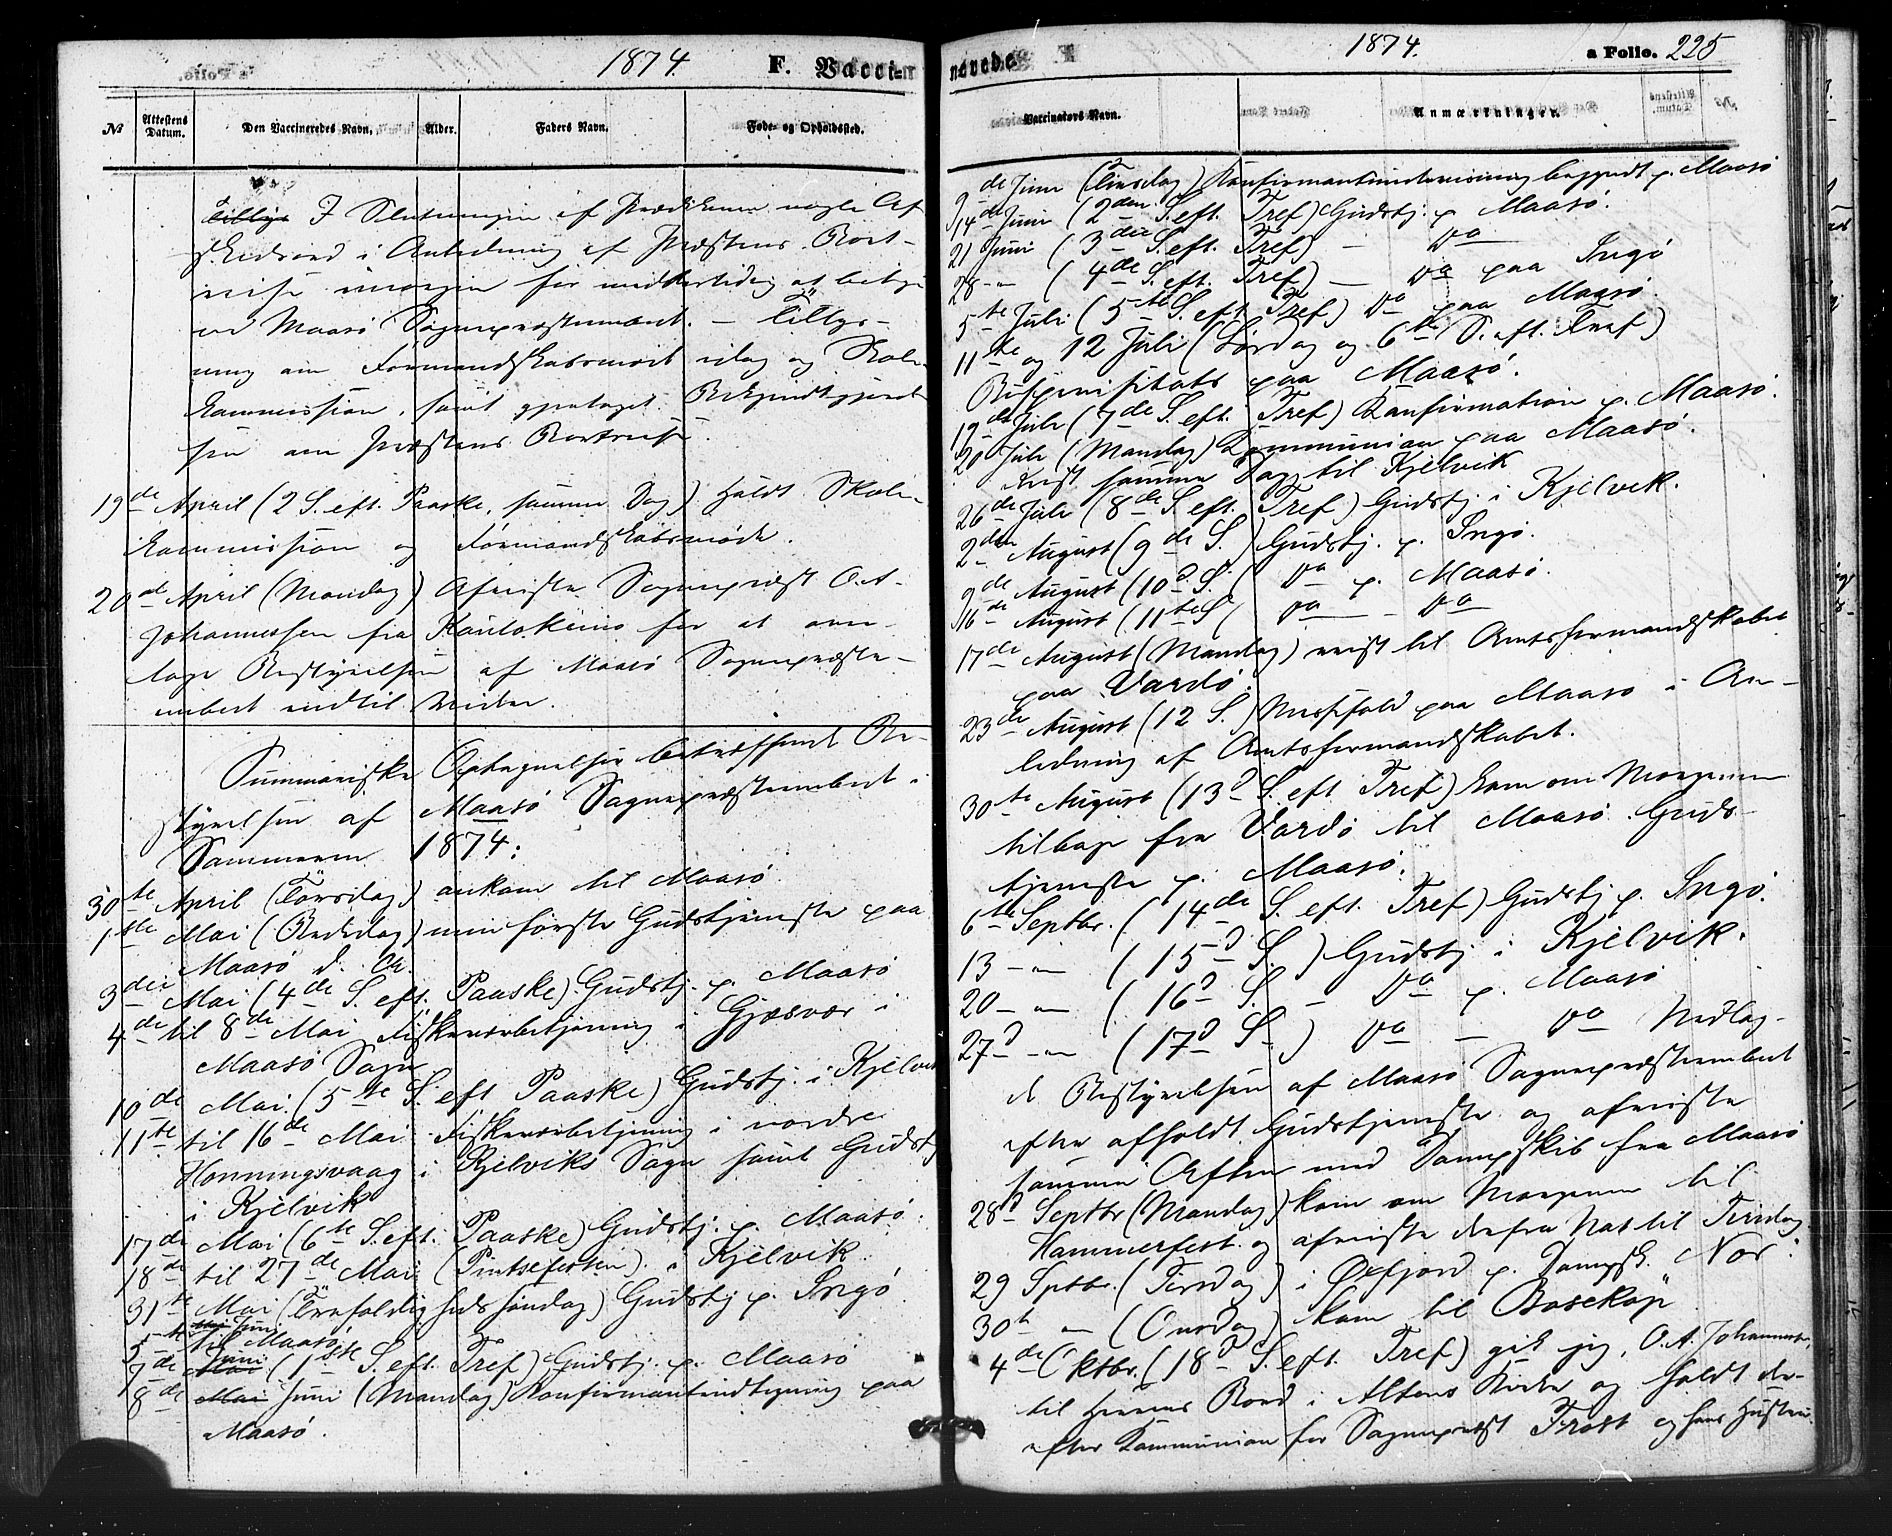 1874.
F. Vacci-
№
Attestens Datum.
Den Vaccineredes Navn.
Alder.
Faders Navn.
Føde- og Opholdssted.
I Slutningen af Prædikenen nogle Af-
skedsord i Anledning af Præstens Bort-
reise imorgen for midlertidig at besty-
re Maasø Sogneprestembet. — Tillys-
ning om Formandskabsmøde idag og Skole-
kommission, samt gjentaget Bekjendtgjørel-
sen om Præstens Bortreise.
19de April (2 S. eft. Paaske, samme Dag) Holdt Skole-
kommission og Formandskabsmøde.
20de April (Mandag) Afreiste Sogneprest O. A.
Johannessen fra Kautokeino for at over-
tage Bestyrelsen af Maasø Sogneprest-
embed indtil videre.
Summariske Optegnelser betreffende Be-
styrelsen af Maasø Sogneprestembed i
Sommeren 1874:
30te April (Torsdag) ankom til Maasø.
1ste Mai (Bededag) min første Gudstjeneste paa
Maasø
3die Mai (4de S. eft. Paaske) Gudstj. p. Maasø
4de til 8de Mai Fiskeværbetjening i Gjæsvær i
Maasø Sogn
10de Mai (5te S. eft Paaske) Gudstj. i Kjelvik
11te til 16de Mai Fiskeværbetjening i nordre
Honningsvaag i Kjelviks Sogn samt Gudstj.
i Kjelvik
17de Mai (6te S. eft. Paaske) Gudstj. p. Maasø.
18de til 27de Mai (Pintsefesten) i Kjelvik.
31te Mai (Trefoldighedssøndag) Gudstj p. Ingø
5te Juni til Maasø.
7de Juni (1ste S. eft. Tref) Gudstj. p. Maasø
8de Mai Juni (Mandag) Konfirmant paa
Maasø.
navede.
1874.
a Folio. 225
Vaccinators Navn.
Anmærkninger.
9de Juni (Tirsdag) Konfirmantundervisning begyndt p. Maasø
14de Juni (2den S. eft. Tref) Gudstj. p Maasø.
21 Juni (3die S. eft. Tref) — Do
28 — (4de S. eft. Tref) — Do paa Ingø
5te Juli (5te S. eft Tref) Do paa Maasø.
11te og 12 Juli (Lørdag og 6te S. eft. Tref)
Bispevisitats paa Maasø.
19de Juli (7de S. eft. Tref) Konfirmation p. Maasø.
20 Juli (Mandag) Kommunion paa Maasø.
Reist samme Dag til Kjelvik
26de Juli (8de S. eft. Tref) Gudstj. i Kjelvik.
2den August (9de S.) Gudstj. p. Ingø.
9de August (10d S. (Do p. Maasø.
16de August (11te S (Do — Do
17de August (Mandag) reist til Amtsformandskabet
paa Vardø.
23de August (12 S.) Messefald paa Maasø i An-
ledning af Amtsformandskabet.
30te August (13d S. eft Tref) kom om Morgenen
tilbage fra Vardø til Maasø. Guds-
tjeneste p. Maasø.
6te Septbr. (14de S. eft. Tref) Gudstj p. Ingø.
13 — (15d S.) Gudstj i Kjelvik.
20 — (16d S. — Do p. Maasø
27d — (17d S.) Do — Do Nedlag-
de Bestyrelsen af Maasø Sogneprestembed
efter afholdt Gudstjeneste og afreiste
samme Aften med Dampskib fra Maasø
28d Septbr (Mandag) kom om Morgenen til
Hammerfest og afreiste derfra Nat til Tirsdag.
29 Sptbr. (Tirsdag) i Øxfjord p. Dampsk. Nor.
30te — (Onsdag) kom til Bosekop
4de Oktbr. (18d S. eft. Tref) gik jeg, O. A. Johannessen,
til Herrens Bord i Altens Kirke og holdt der-
efter Kommunion for Sogneprest Trost og hans Hustru.